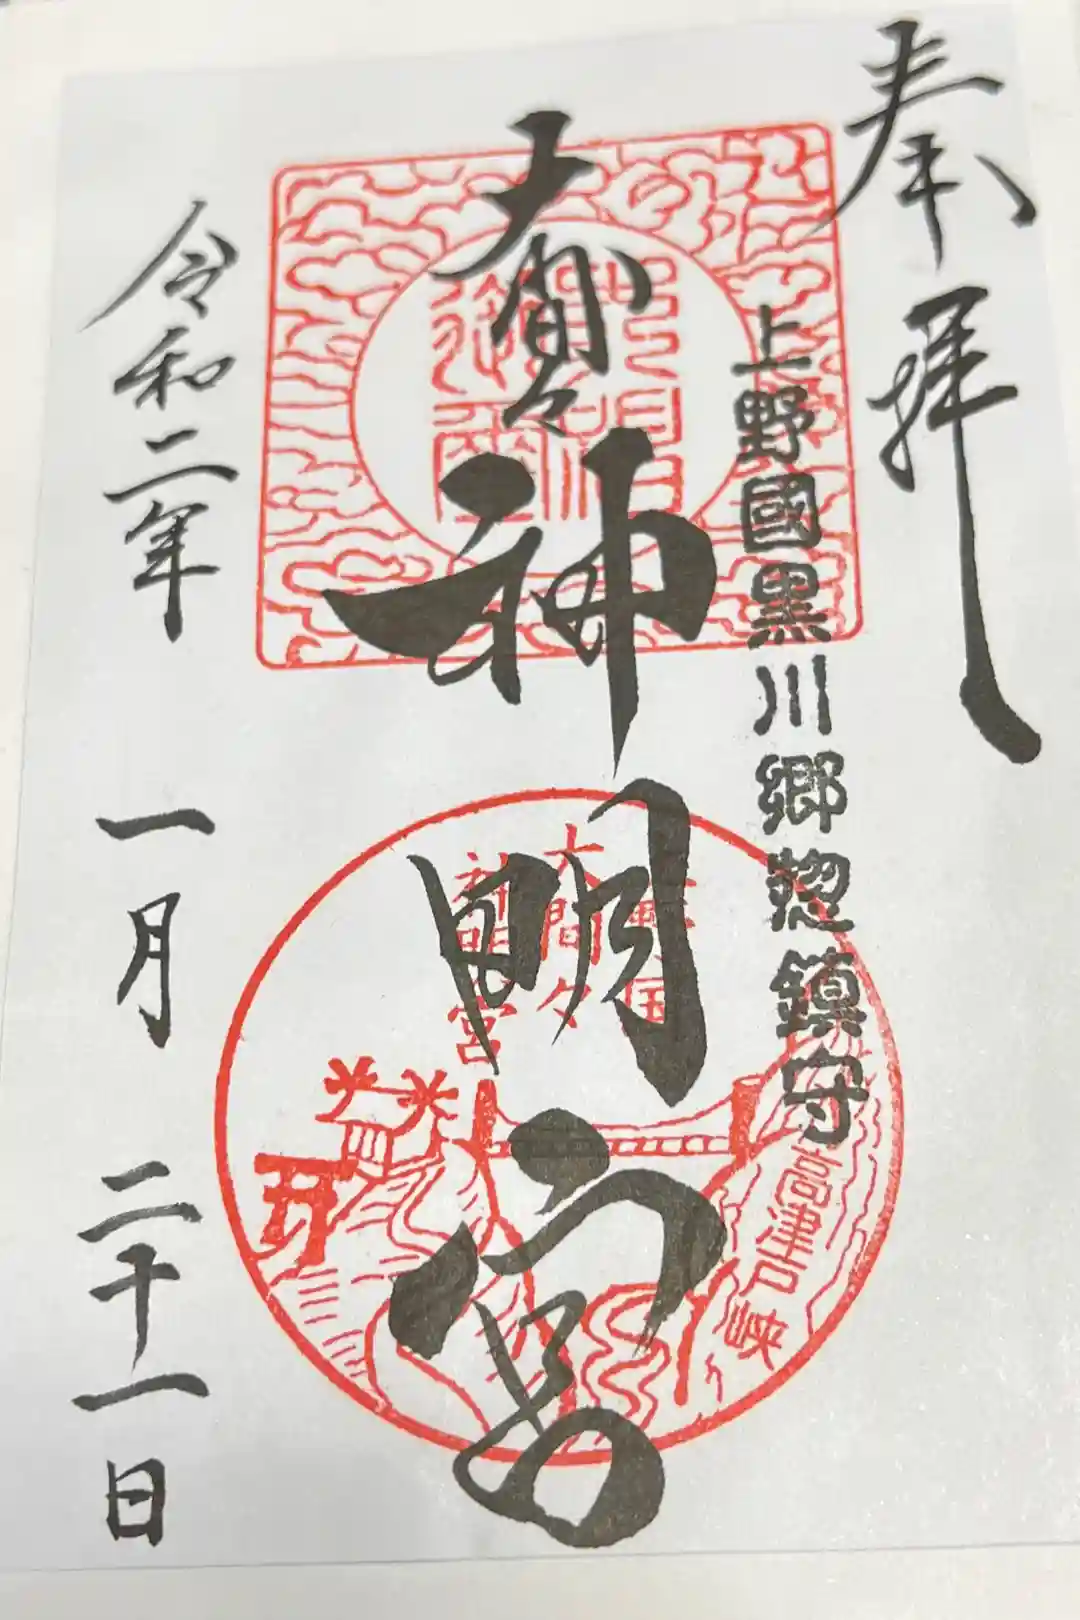 奉拝
上野國黒川郷惣鎮守
神明宮
大間々
神明宮
高津戸峡
令和二年
一月
二十一日